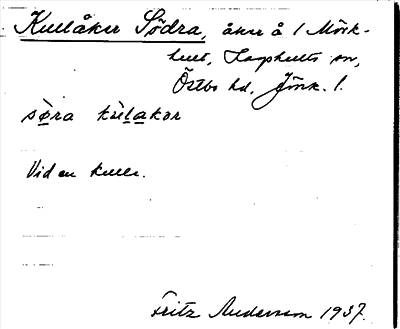 Kullåker Södra, åker å 1 Mörk-
hult, Kagghults sn,
Östbo hd, Jönk. l.
sø̱ra kùḻa̱kər
Vid en kulle.
Fritz Andersson 1937.